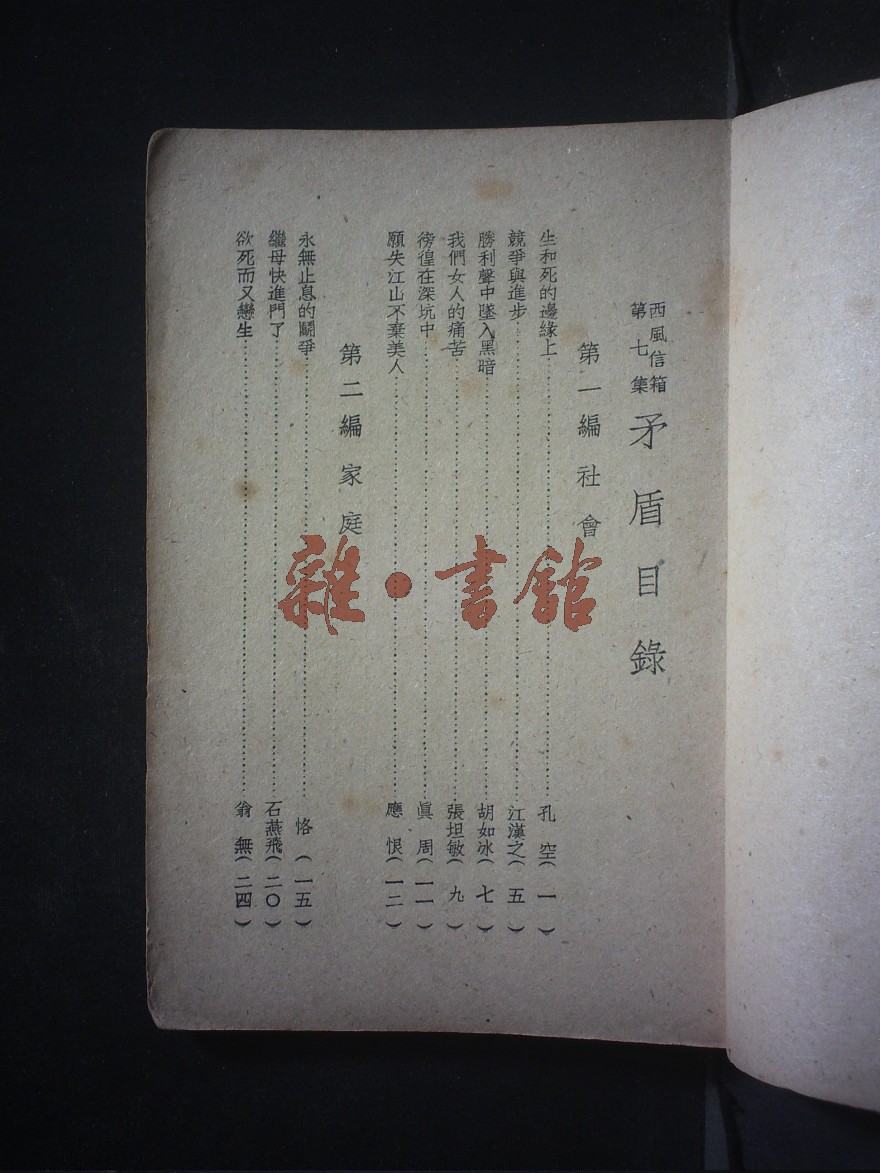 西風信箱
第七集
矛盾目錄
第一編 社會
生和死的邊緣上……孔 空(一)
競爭與進步……江漢之(五)
勝利聲中墜入黑暗……胡如冰(七)
我們女人的痛苦……張坦敏(九)
徬徨在深坑中……眞 周(一一)
願失江山不棄美人……應 恨(一二)
第二編 家庭
永無止息的鬭爭……恪(一五)
繼母快進門了……石燕飛(二〇)
欲死而又戀生……翁 無(二四)
雜·書館